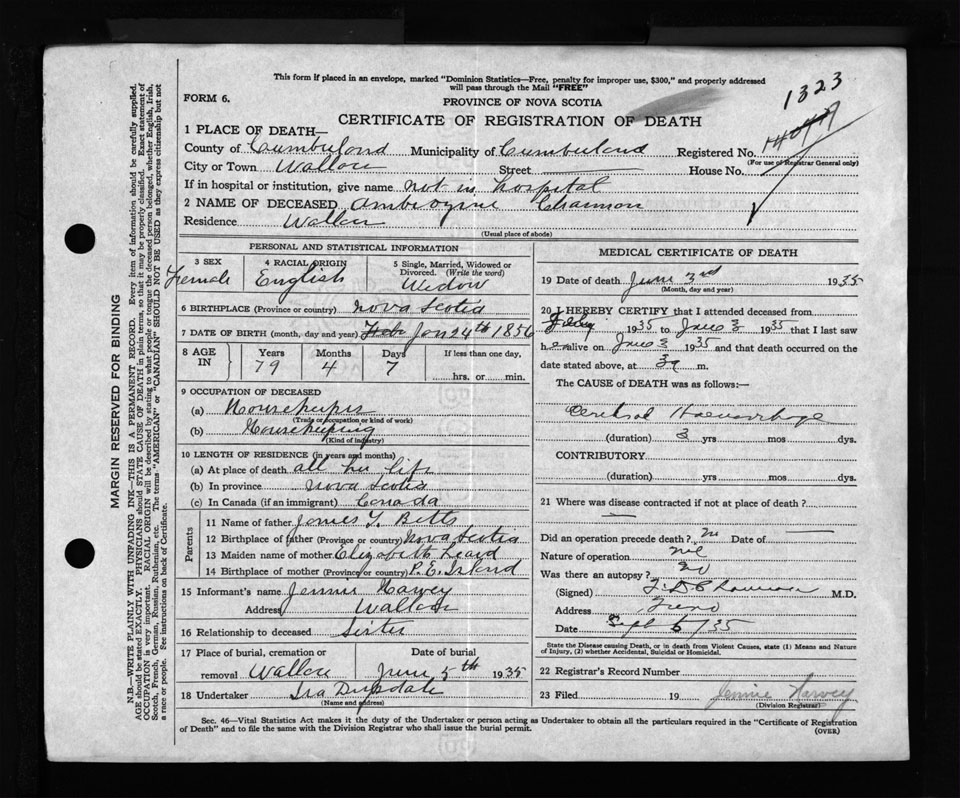 This form if placed in an envelope, marked "Dominion Statistics—Free, penalty for improper use, $300," and properly addressed
will pass through the Mail "FREE"
1323
FORM 6.
PROVINCE OF NOVA SCOTIA
CERTIFICATE OF REGISTRATION OF DEATH
1 PLACE OF DEATH—
County of Cumberland Municipality of Cumberland Registered No.
(For use of Registrar General only)
City or Town Wallace Street House No.
If in hospital or institution, give name not in hospital
2 NAME OF DECEASED Ambrozine
Residence Wallace
(Usual place of abode)
PERSONAL AND STATISTICAL INFORMATION
3 SEX 4 RACIAL ORIGIN 5 Single, Married, Widowed or Divorced. (Write the word)
Female English Widow
6 BIRTHPLACE (Province or country) Nova Scotia
7 DATE OF BIRTH (month, day and year) Feb Jan 24th 1856
8 AGE IN Years Months Days If less than one day,
79 4 7 hrs. or min.
9 OCCUPATION OF DECEASED
(a) Housekeeper
(Trade or occupation or kind of work)
(b) Housekeeping
(Kind of industry)
10 LENGTH OF RESIDENCE (in years and months)
(a) At place of death all her life
(b) In province Nova Scotia
(c) In Canada (if an immigrant) Canada
Parents
11 Name of father James Y. Betts
12 Birthplace of father (Province or country) Nova Scotia
13 Maiden name of mother Elizabeth Leard
14 Birthplace of mother (Province or country) P.E. Island
15 Informant's name Jennie Harvey
Address Wallace
16 Relationship to deceased Sister
17 Place of burial, cremation or Date of burial
removal Wallace June 5th 1935
18 Undertaker Ira Drysdale
(Name and address)
MEDICAL CERTIFICATE OF DEATH
19 Date of death June 3rd 1935
(Month, day and year)
20 I HEREBY CERTIFY that I attended deceased from
1935 to June 3 1935 that I last saw
her alive on June 3 1935 and that death occurred on the
date stated above, at 3 a m.
The CAUSE OF DEATH was as follows:
Cerebral Haemorrhage
(duration) 3 yrs mos dys.
CONTRIBUTORY
(duration) yrs mos dys.
21 Where was disease contracted if not at place of death?
—
Did an operation precede death? no Date of —
Nature of operation nil
Was there an autopsy? no
(Signed) M.D.
Address
Date Sept 6/35
State the Disease causing Death, or in death from Violent Causes, state (1) Means and Nature
of Injury, (2) whether Accidental, Suicidal or Homicidal.
22 Registrar's Record Number
23 Filed 19 Jennie Harvey
(Division Registrar)
Sec. 46—Vital Statistics Act makes it the duty of the Undertaker or person acting as Undertaker to obtain all the particulars required in the "Certificate of Registration
of Death" and to file the same with the Division Registrar who shall issue the burial permit.
(OVER)
MARGIN RESERVED FOR BINDING
N.B.—WRITE PLAINLY WITH UNFADING INK—THIS IS A PERMANENT RECORD. Every item of information should be carefully supplied.
AGE should be stated EXACTLY. PHYSICIANS should STATE CAUSE OF DEATH in plain terms, so that it may be properly classified. Exact statement of
OCCUPATION is very important. RACIAL ORIGIN will be described by stating to what people or tongue the deceased person belonged, whether English, Irish,
Scotch, French, German, Russian, Ruthenian, etc. The terms "AMERICAN" or "CANADIAN" SHOULD NOT BE USED as they express citizenship but not
a race or people. See instructions on back of Certificate.